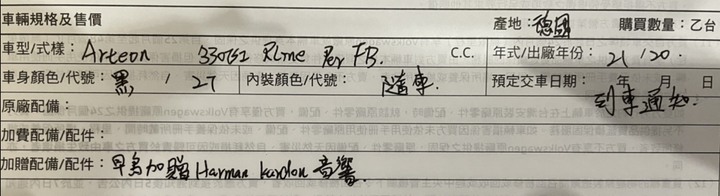 車輛規格及售價 產地：德國 購買數量：乙台
車型/式樣：Arteon 330TSI RLine Per FB. C.C. 年式/出廠年份：21 / 20.
車身顏色/代號：黑 / 27 內裝顏色/代號：隨車. 預定交車日期： 年 月 日
到車通知.
原廠配備：
加費配備/配件：
加贈配備/配件：早鳥加贈Harman kardon 音響.